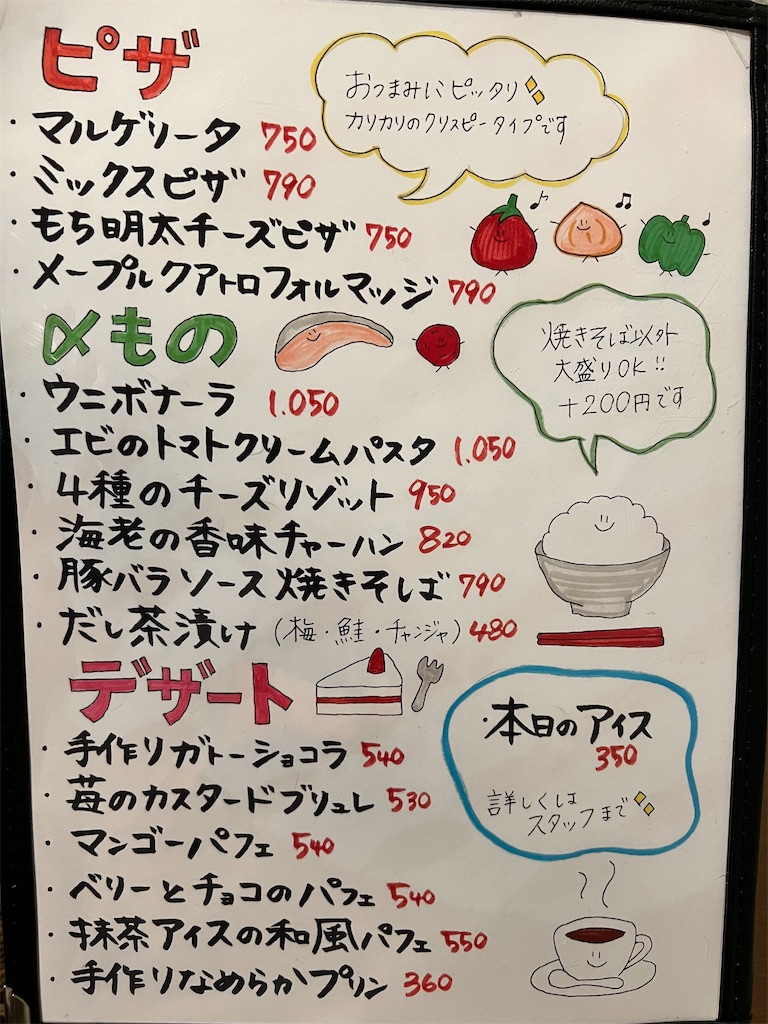 ピザ
おつまみにピッタリ
カリカリのクリスピータイプです
・マルゲリータ 750
・ミックスピザ 790
・もち明太チーズピザ 750
・メープルクアトロフォルマッジ 790
〆もの
焼きそば以外
大盛りOK!!
+200円です
・ウニボナーラ 1.050
・エビのトマトクリームパスタ 1.050
・4種のチーズリゾット 950
・海老の香味チャーハン 820
・豚バラソース焼きそば 790
・だし茶漬け(梅・鮭・チャンジャ) 480
デザート
・本日のアイス
350
詳しくは
スタッフまで
・手作りガトーショコラ 540
・苺のカスタードブリュレ 530
・マンゴーパフェ 540
・ベリーとチョコのパフェ 540
・抹茶アイスの和風パフェ 550
・手作りなめらかプリン 360